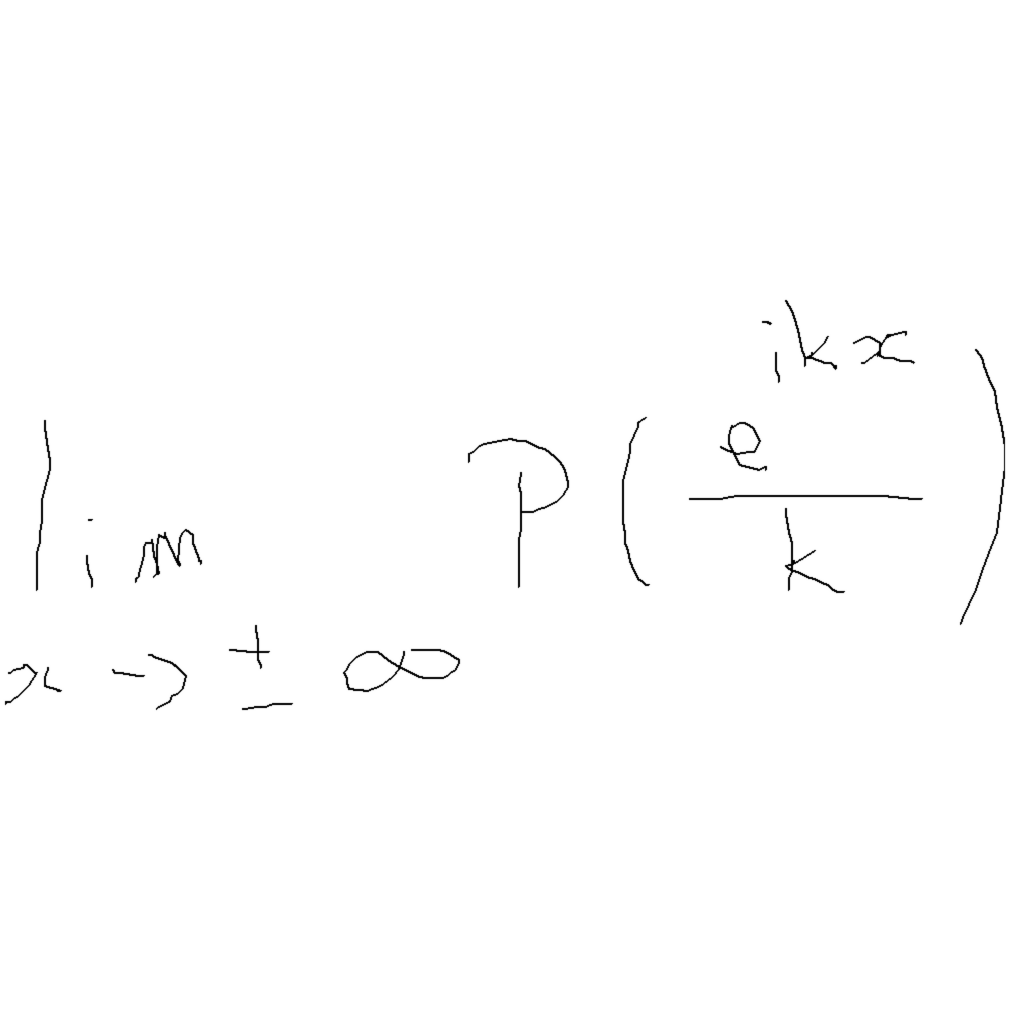 \lim_{x \to \pm \infty} P \left( \frac{e^{ikx}}{k} \right)